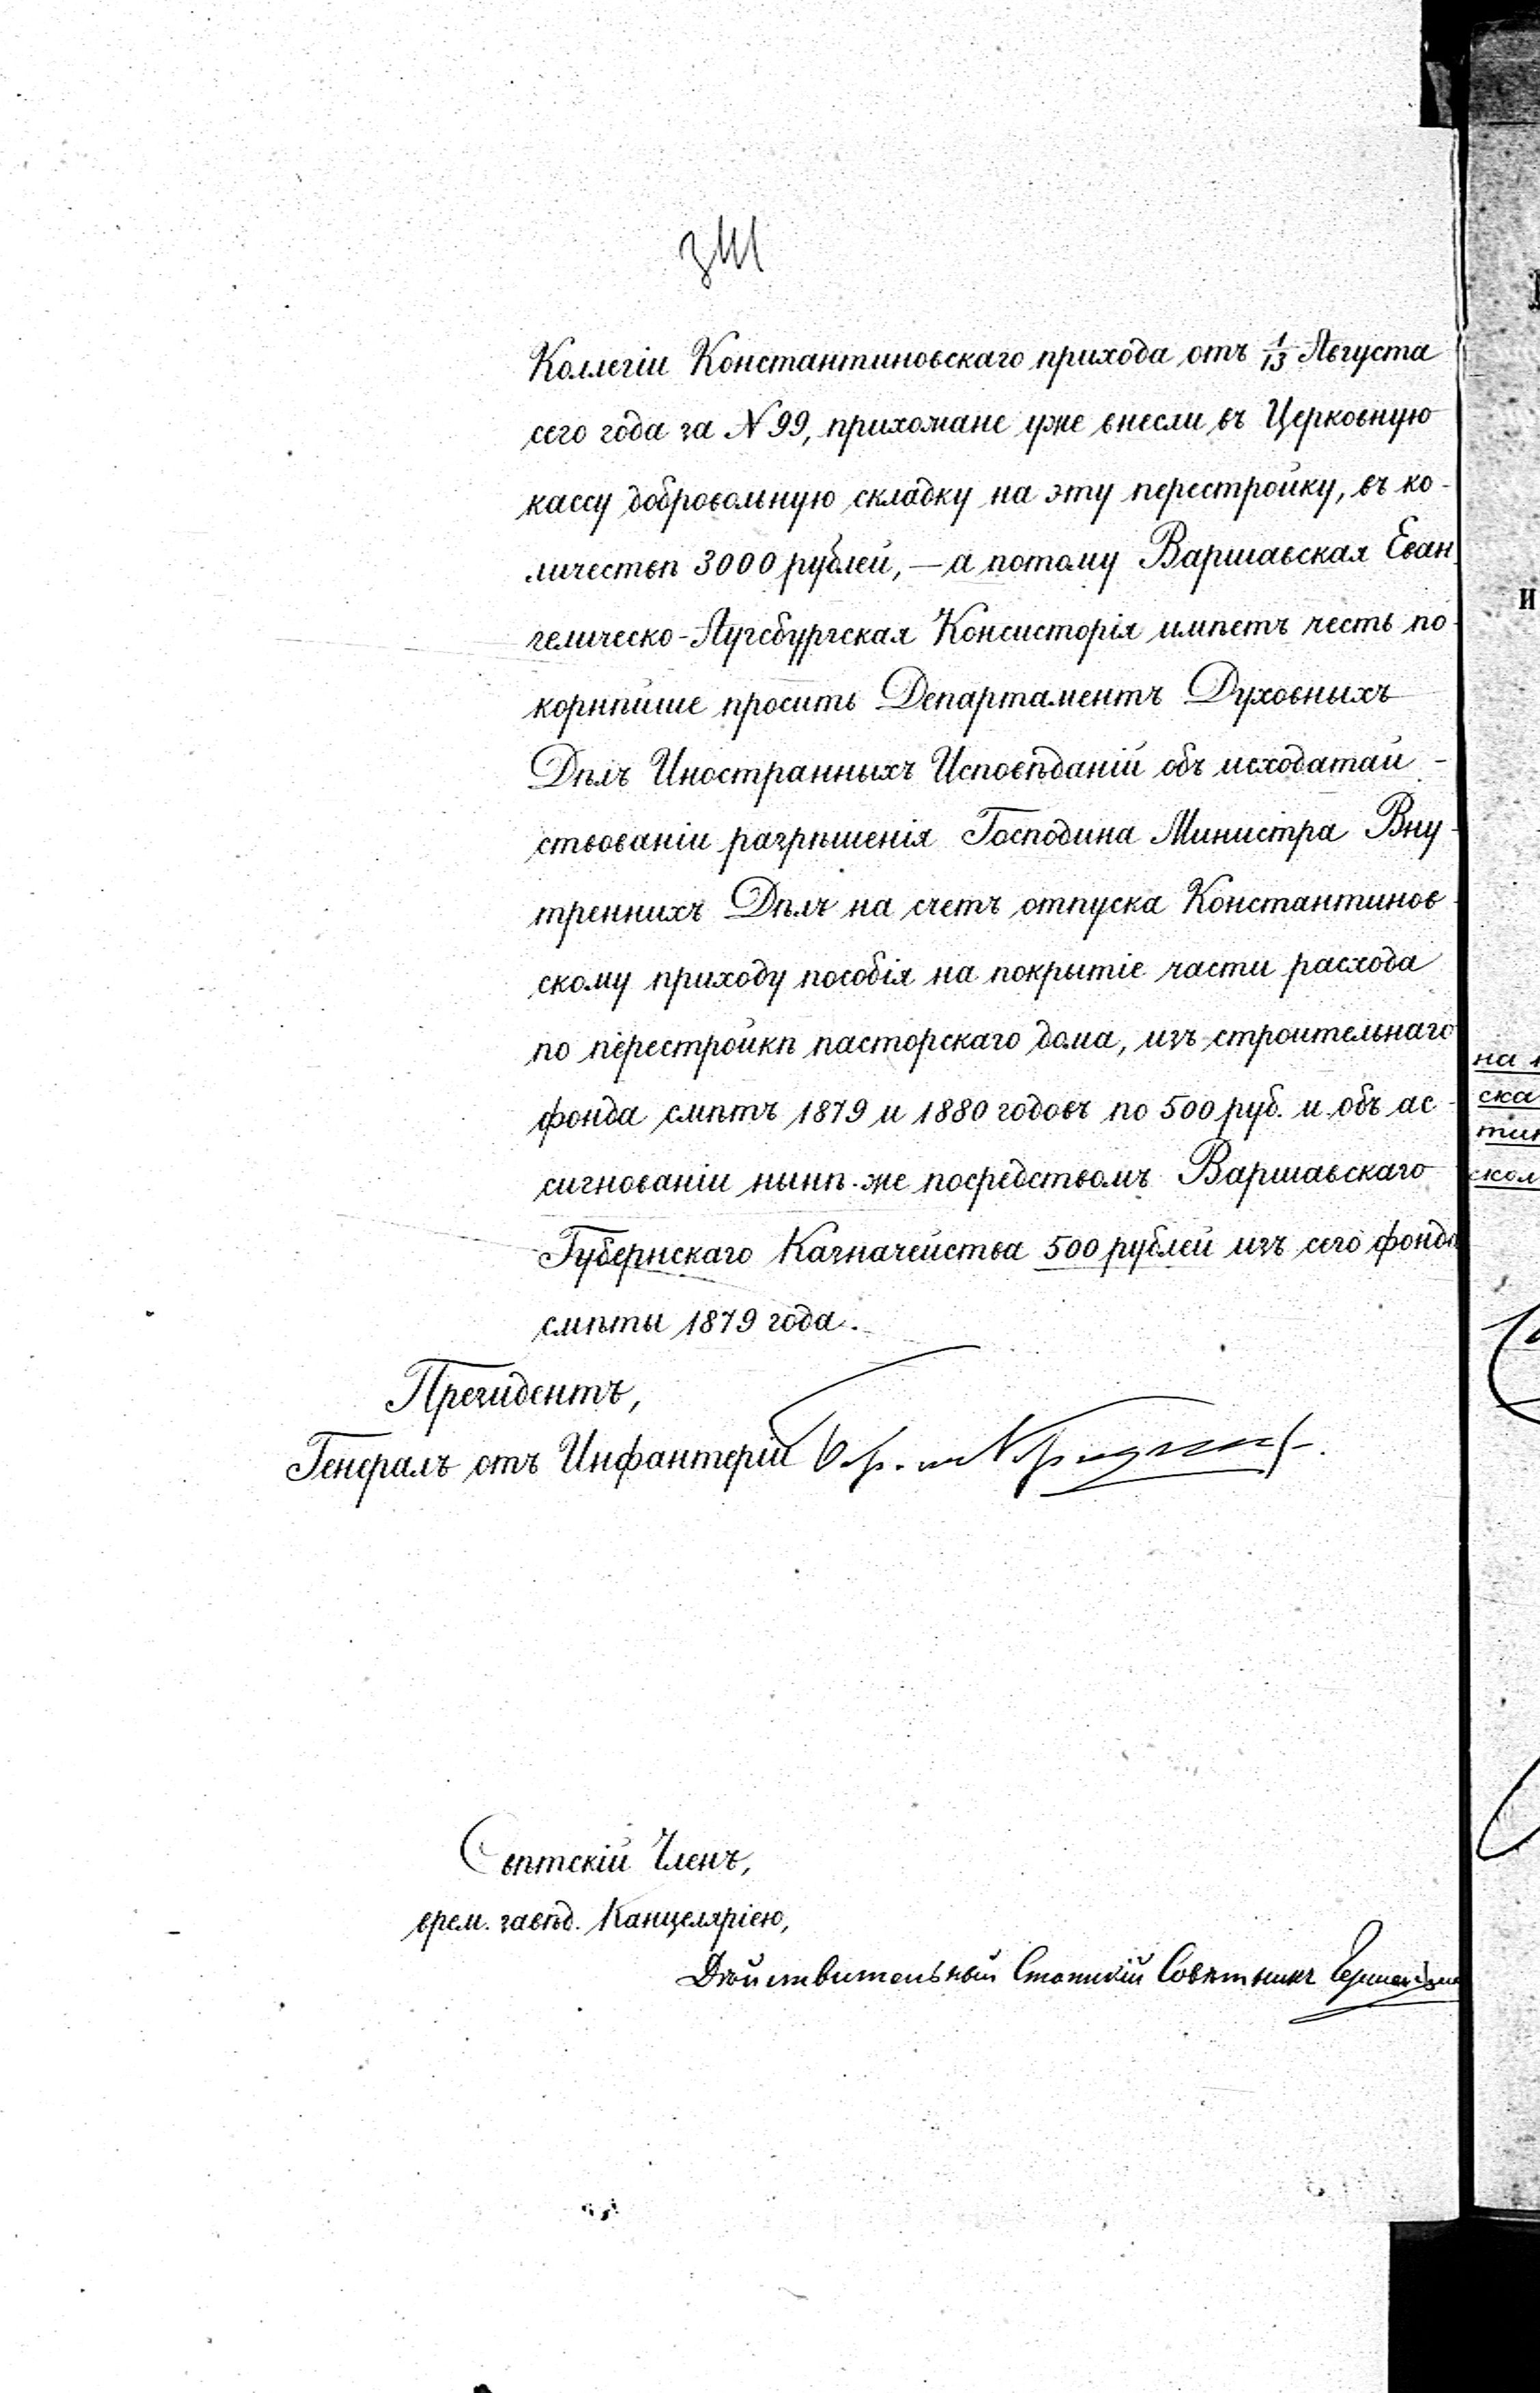 Коллегіи Константиновскаго прихода отъ 1/13 Августа
сего года за N 99, прихожане уже внесли въ Церковную
кассу добровольную складку на эту перестройку, въ ко-
личествѣ 3000 рублей, — а потому Варшавская Еван-
гелическо-Аугсбургская Консисторія имѣетъ честь по-
корнѣйше просить Департаментъ Духовныхъ
Дѣлъ Иностранныхъ Исповѣданій объ исходатай-
ствованіи разрѣшенія Господина Министра Вну-
треннихъ Дѣлъ на счетъ отпуска Константинов-
скому приходу пособія на покрытіе части расхода
по перестройкѣ пасторскаго дома, изъ строительнаго
фонда смѣтъ 1879 и 1880 годовъ по 500 руб. и объ ас-
сигнованіи нынѣ-же посредствомъ Варшавскаго
Губернскаго Казначейства 500 рублей изъ сего фонда
смѣты 1879 года.
Президентъ,
Генералъ отъ Инфантеріи
Свѣтскій Членъ,
врем. завѣд. Канцеляріею,
Дѣйствительный Статскій Совѣтникъ
на
ска
тин
ском
и